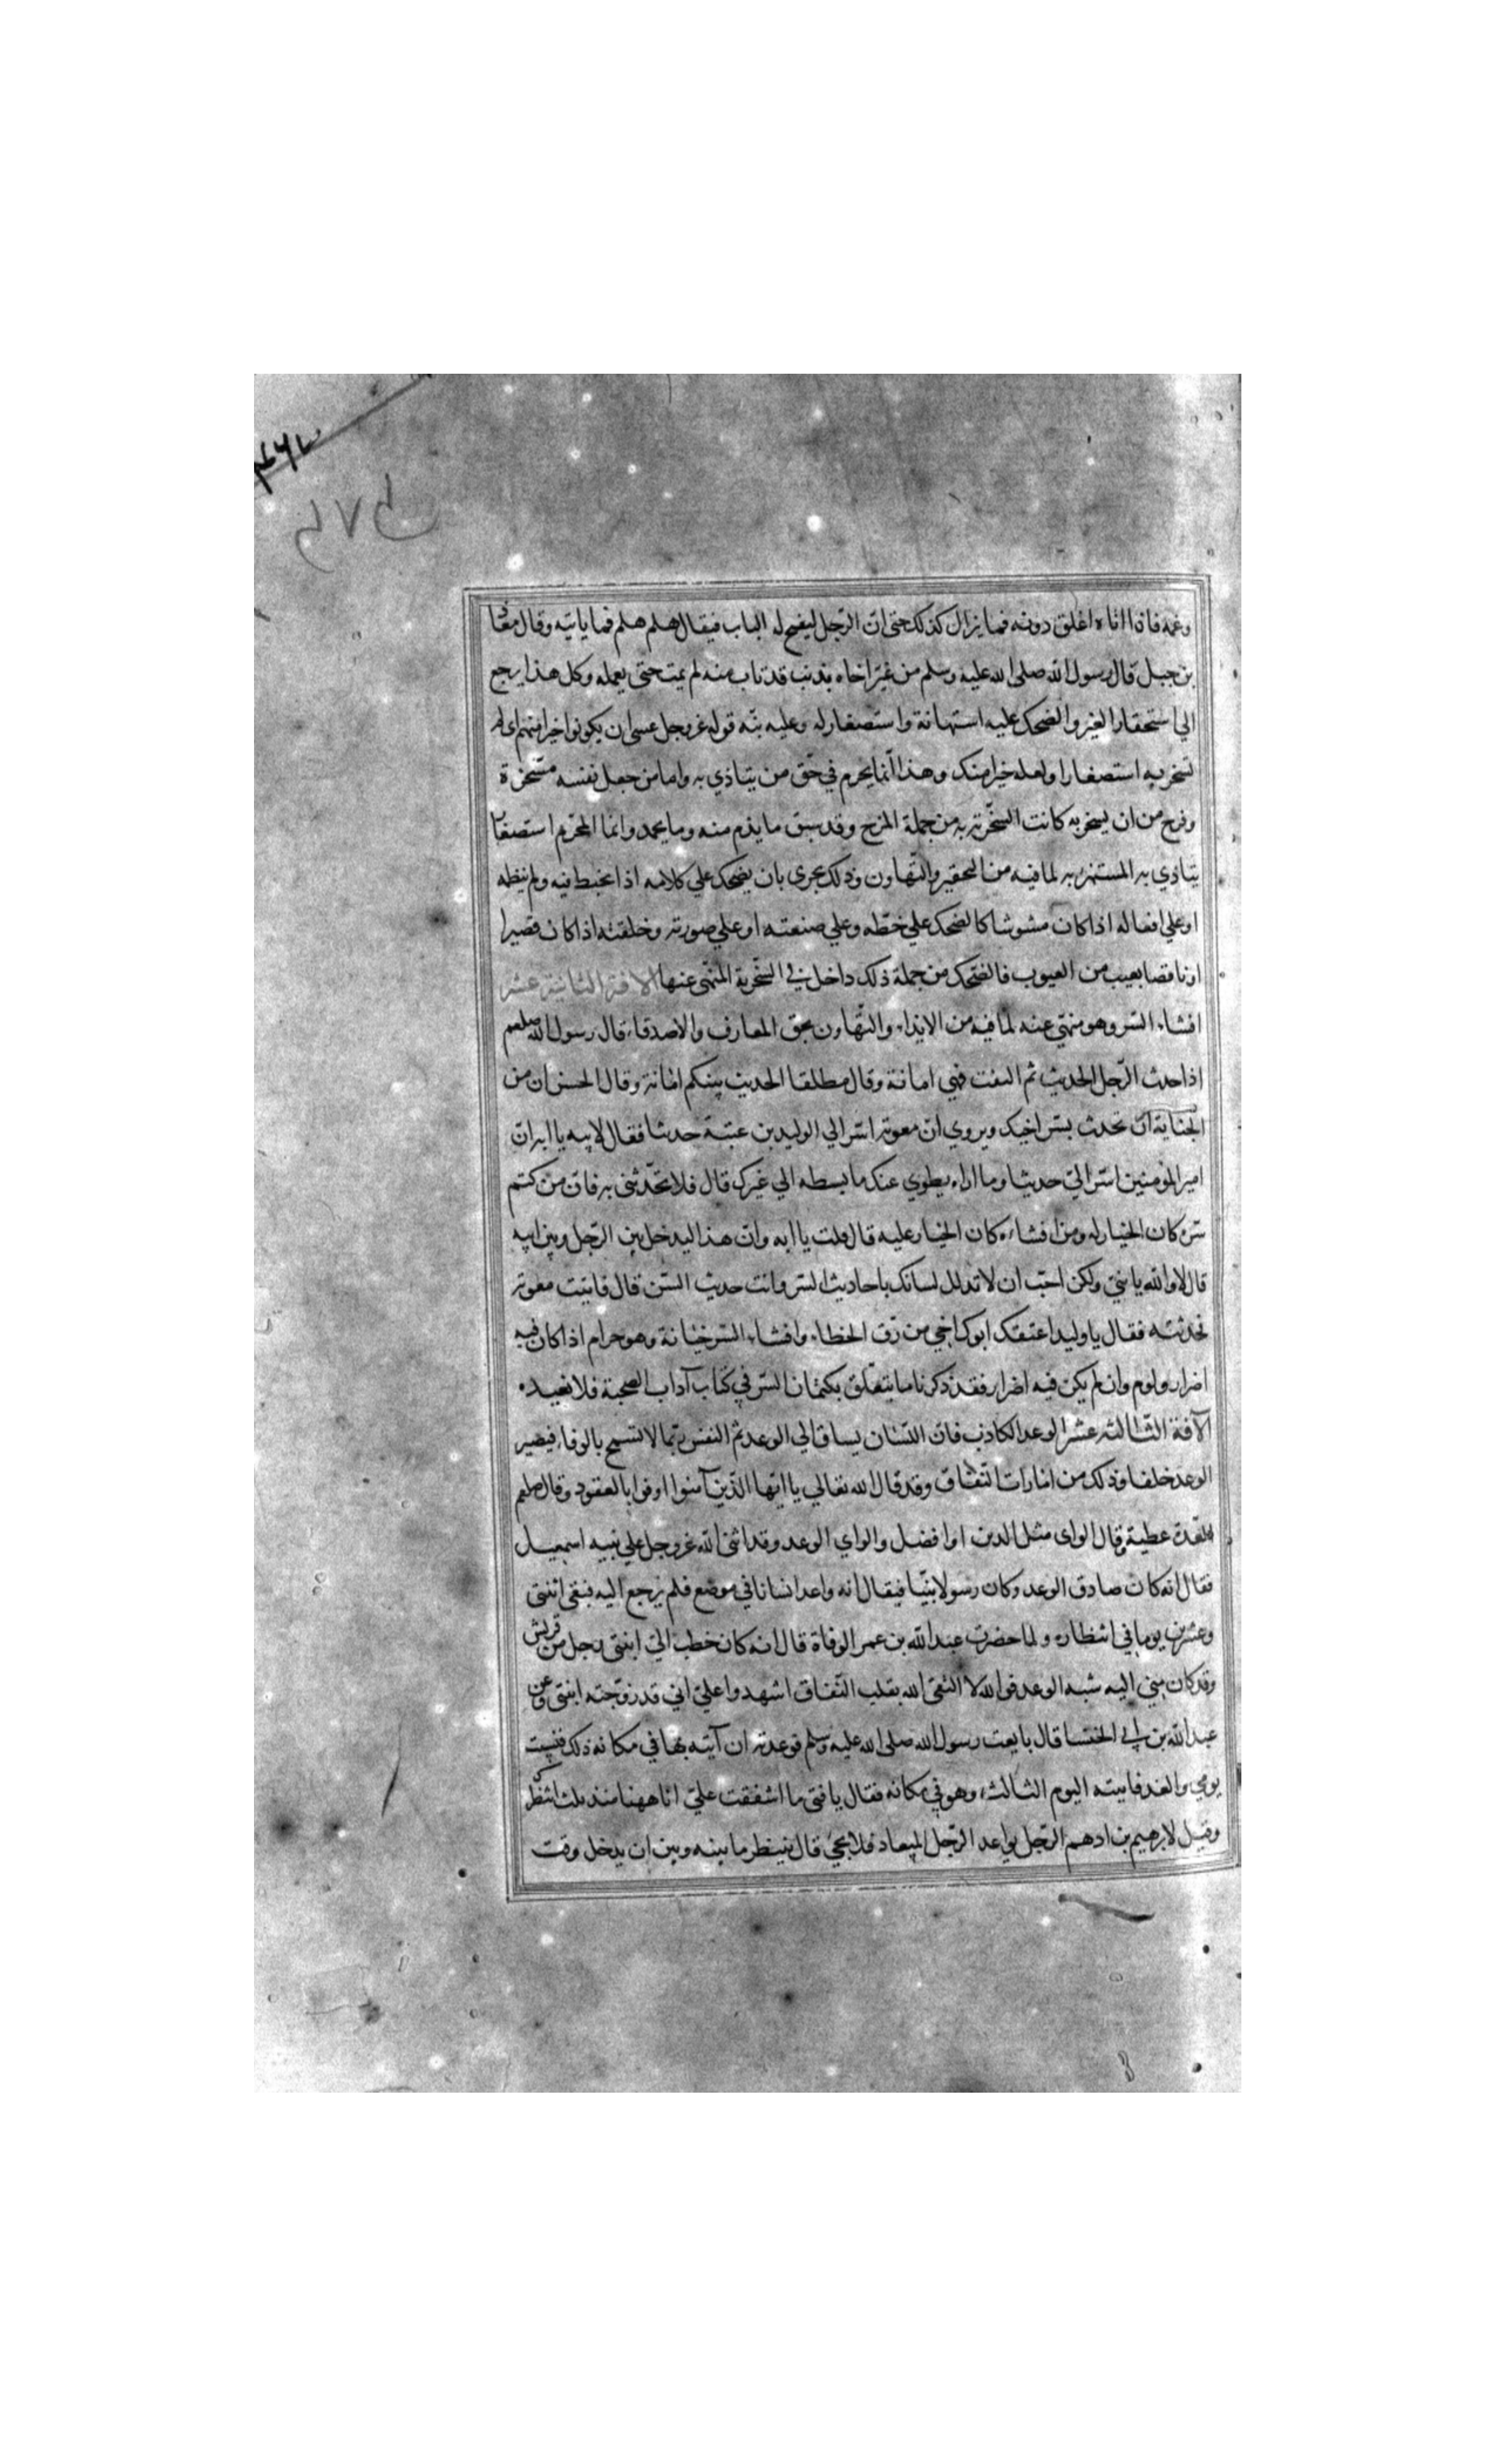 وغمه فاذا اتاه اغلق دونه فما يزال كذلك حتى ان الرجل ليفتح له الباب فيقال هلم هلم فما ياتيه وقال معاذ
بن جبل قال رسول الله صلى الله عليه وسلم من عيّر اخاه بذنب قد تاب منه لم يمت حتى يعمله وكل هذا يرجع
الي استحقار الغير والضحك عليه استهانة واستصغارا له وعليه نبّه قوله عز وجل عسى ان يكونوا خيرا منهم اي لم
تسخر به استصغارا ولعله خير امنك وهذا انما يحرم في حق من يتاذي به واما من جعل نفسه مسخرة
وفرح من ان يسخر به كانت السخرية به من جملة المزح وقد سبق ما يذم منه وما يحمد وانما المحرم استصغار
يتاذى به المستهزء به لما فيه من التحقير والتهاون وذلك يجرى بان يضحك علي كلامه اذا تخبط فيه ولم ينظه
او علي افعاله اذا كان مشوشا كالضحك علي خطه وعلي صنعته او علي صورته وخلقته اذا كان قصيرا
او ناقصا بعيب من العيوب فالضحك من جملة ذلك داخل في السخرية المنهى عنها الافة الثانية عشر
افشاء السر وهو منهي عنه لما فيه من الايذاء والتهاون بحق المعارف والاصدقاء قال رسول الله صلعم
اذا حدث الرجل الحديث ثم التفت فهي امانة وقال مطلقا الحديث بينكم امانة وقال الحسن ان من
الخيانة ان تحدث بسر اخيك ويروي ان معوية اسر الي الوليد بن عتبة حديثا فقال لابيه يا ابه ان
امير المؤمنين اسر اليّ حديثا وما اراه يطوي عنك ما بسطه الي غيرك قال فلا تحدثني به فان من كتم
سره كان الخيار له ومن افشاءه كان الخيار عليه قال قلت يا ابه وان هذا ليدخل بين الرجل وبين ابيه
قال لا والله يا بني ولكن احب ان لا تدلل لسانك باحاديث السر وانت حديث السن قال فاتيت معوية
فحدثته فقال يا وليد اعتقك ابوك اخي من رق الخطاء وافشاء السر خيانة وهو حرام اذا كان فيه
اضرار ولوم وان لم يكن فيه اضرار فقد ذكرنا ما يتعلق بكتمان السر في كتاب آداب الصحبة فلا نعيد
الآفة الثالثة عشر الوعد الكاذب فان اللسان يساق الي الوعد ثم النفس ربما لا تسمح بالوفاء فيصير
الوعد خلفا وذلك من امارات النفاق وقد قال الله تعالي يا ايها الذين آمنوا اوفوا بالعقود وقال صلعم
العدة عطية وقال الواى مثل الدين او افضل والواي الوعد وقد اثنى الله عز وجل علي نبيه اسمعيل
فقال انه كان صادق الوعد وكان رسولا نبيا فيقال انه واعد انسانا في موضع فلم يرجع اليه فبقى اثنتى
وعشرين يوما في انتظاره ولما حضرت عبد الله بن عمر الوفاة قال انه كان خطب الي ابنتى رجل من قريش
وقد كان مني اليه شبه الوعد فوالله لا القى الله بقلب النفاق اشهدوا علي اني قد زوجته ابنتى وعن
عبد الله بن ابي الخنسا قال بايعت رسول الله صلى الله عليه وسلم فوعدته ان آتيه بها في مكانه ذلك فنسيت
يومي والغد فاتيته اليوم الثالث وهو في مكانه فقال يا فتى ما اشفقت علي انا ههنا منذ ثلث انتظر
وقيل لابرهيم بن ادهم الرجل يواعد الرجل الميعاد فلا يجئ قال ينتظر ما بينه وبين ان يدخل وقت